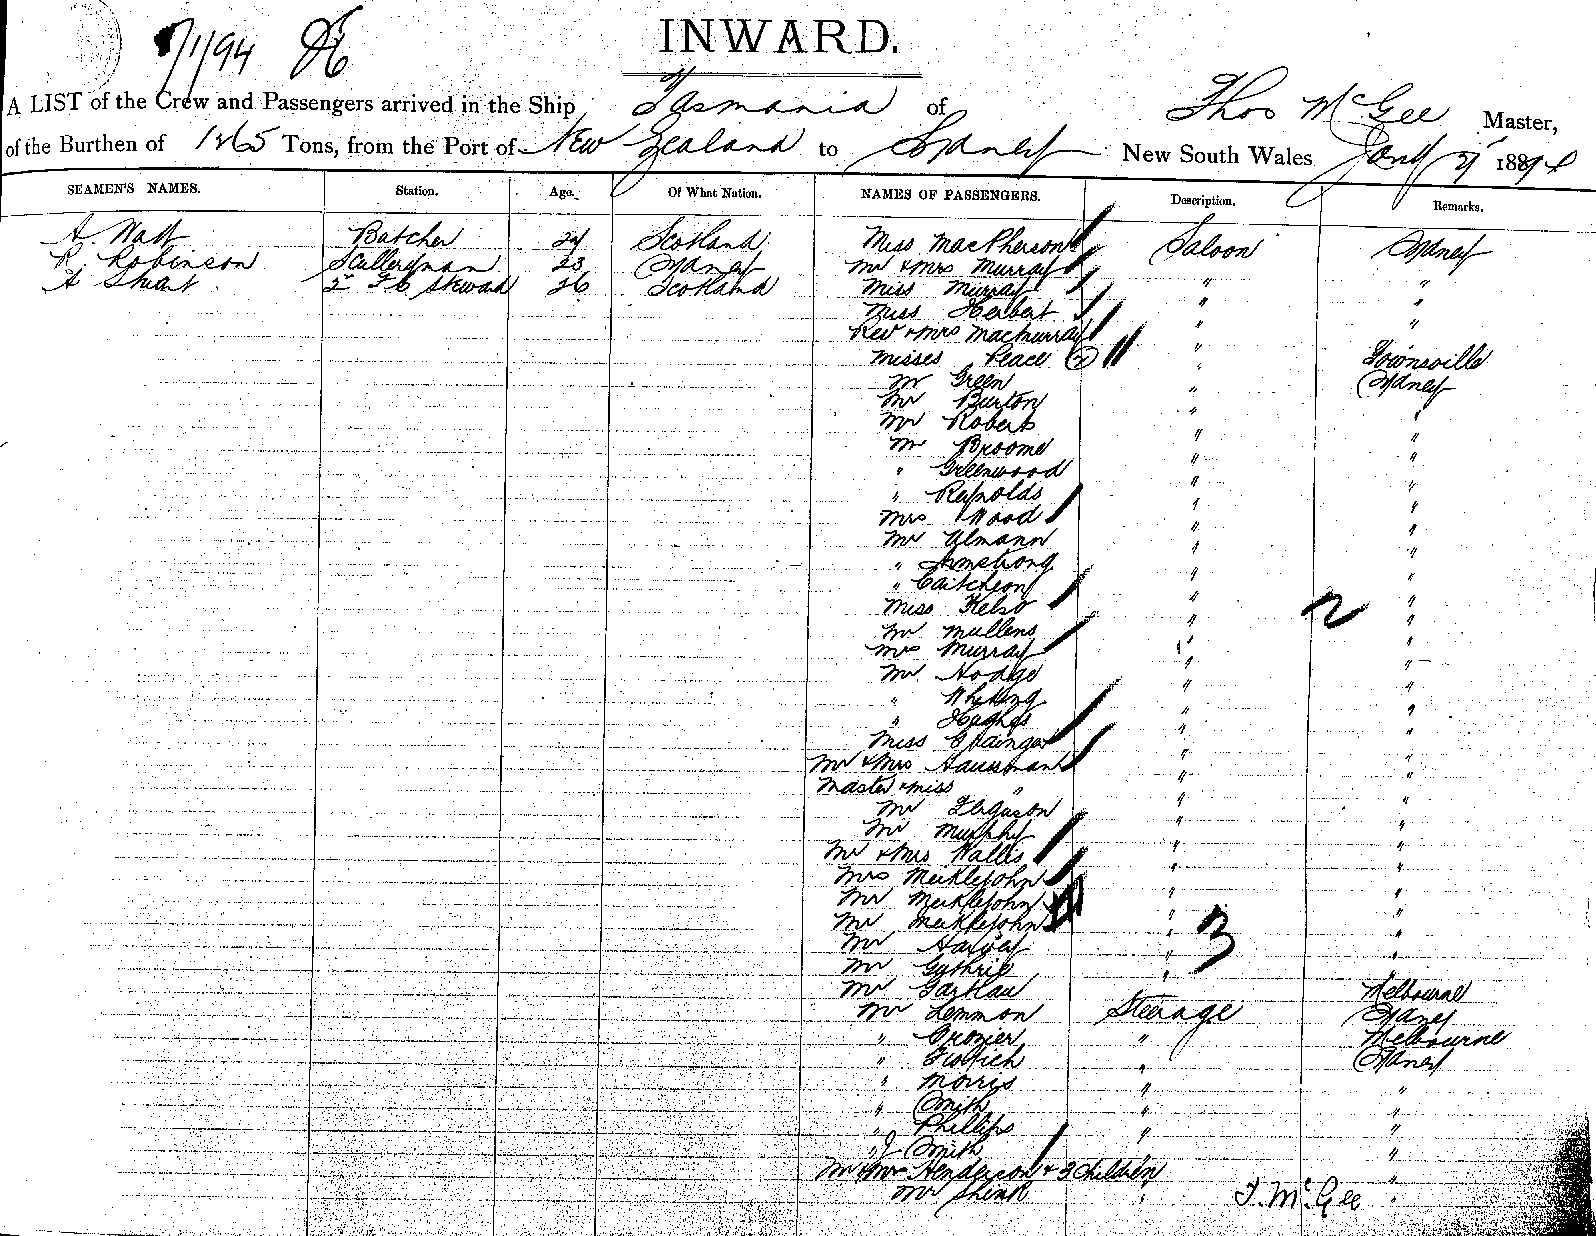 /1/94
INWARD.
A LIST of the Crew and Passengers arrived in the Ship Tasmania of Thos McGee Master,
of the Burthen of Tons, from the Port of New Zealand to Sydney New South Wales Jany 1894
SEAMEN'S NAMES. Station. Age. Of What Nation. NAMES OF PASSENGERS. Description. Remarks.
A. Watt Butcher 24 Scotland Miss MacPherson Saloon Sydney
R. Robinson Sculleryman 23 Sydney Mr & Mrs Murray " "
A Stuart 2nd Steward 26 Scotland Miss Murray " "
Miss Herbert " "
Rev & Mrs MacMurray "
Misses Peace (2) " Townsville
Mr Green " Sydney
Mr Burton " "
Mr Roberts " "
Mr Broome " "
" Greenwood " "
" Reynolds " "
Mrs Wood " "
Mr Ulmann " "
" Armstrong " "
" Caitcheon " "
Miss Kelso " "
Mr Mullens " "
Mrs Murray " "
Mr Hodge " "
" Whiting " "
" Hughes " "
Miss Grainger " "
Mr & Mrs Hausmann " "
Master & Miss " " "
Mr Ferguson " "
Mr Murphy " "
Mr & Mrs Wallis " "
Mrs Meiklejohn " "
Mr Meiklejohn " "
Mr Meiklejohn " "
Mr Harvey " "
Mr Guthrie " "
Mr " Melbourne
Mr Lemmon Steerage Sydney
" Crozier " Melbourne
" " Sydney
" Morris " "
" Smith " "
" Phillips " "
" J Smith " "
Mr & Mrs Henderson & 3 Children "
Mr Shenk " "
T. McGee